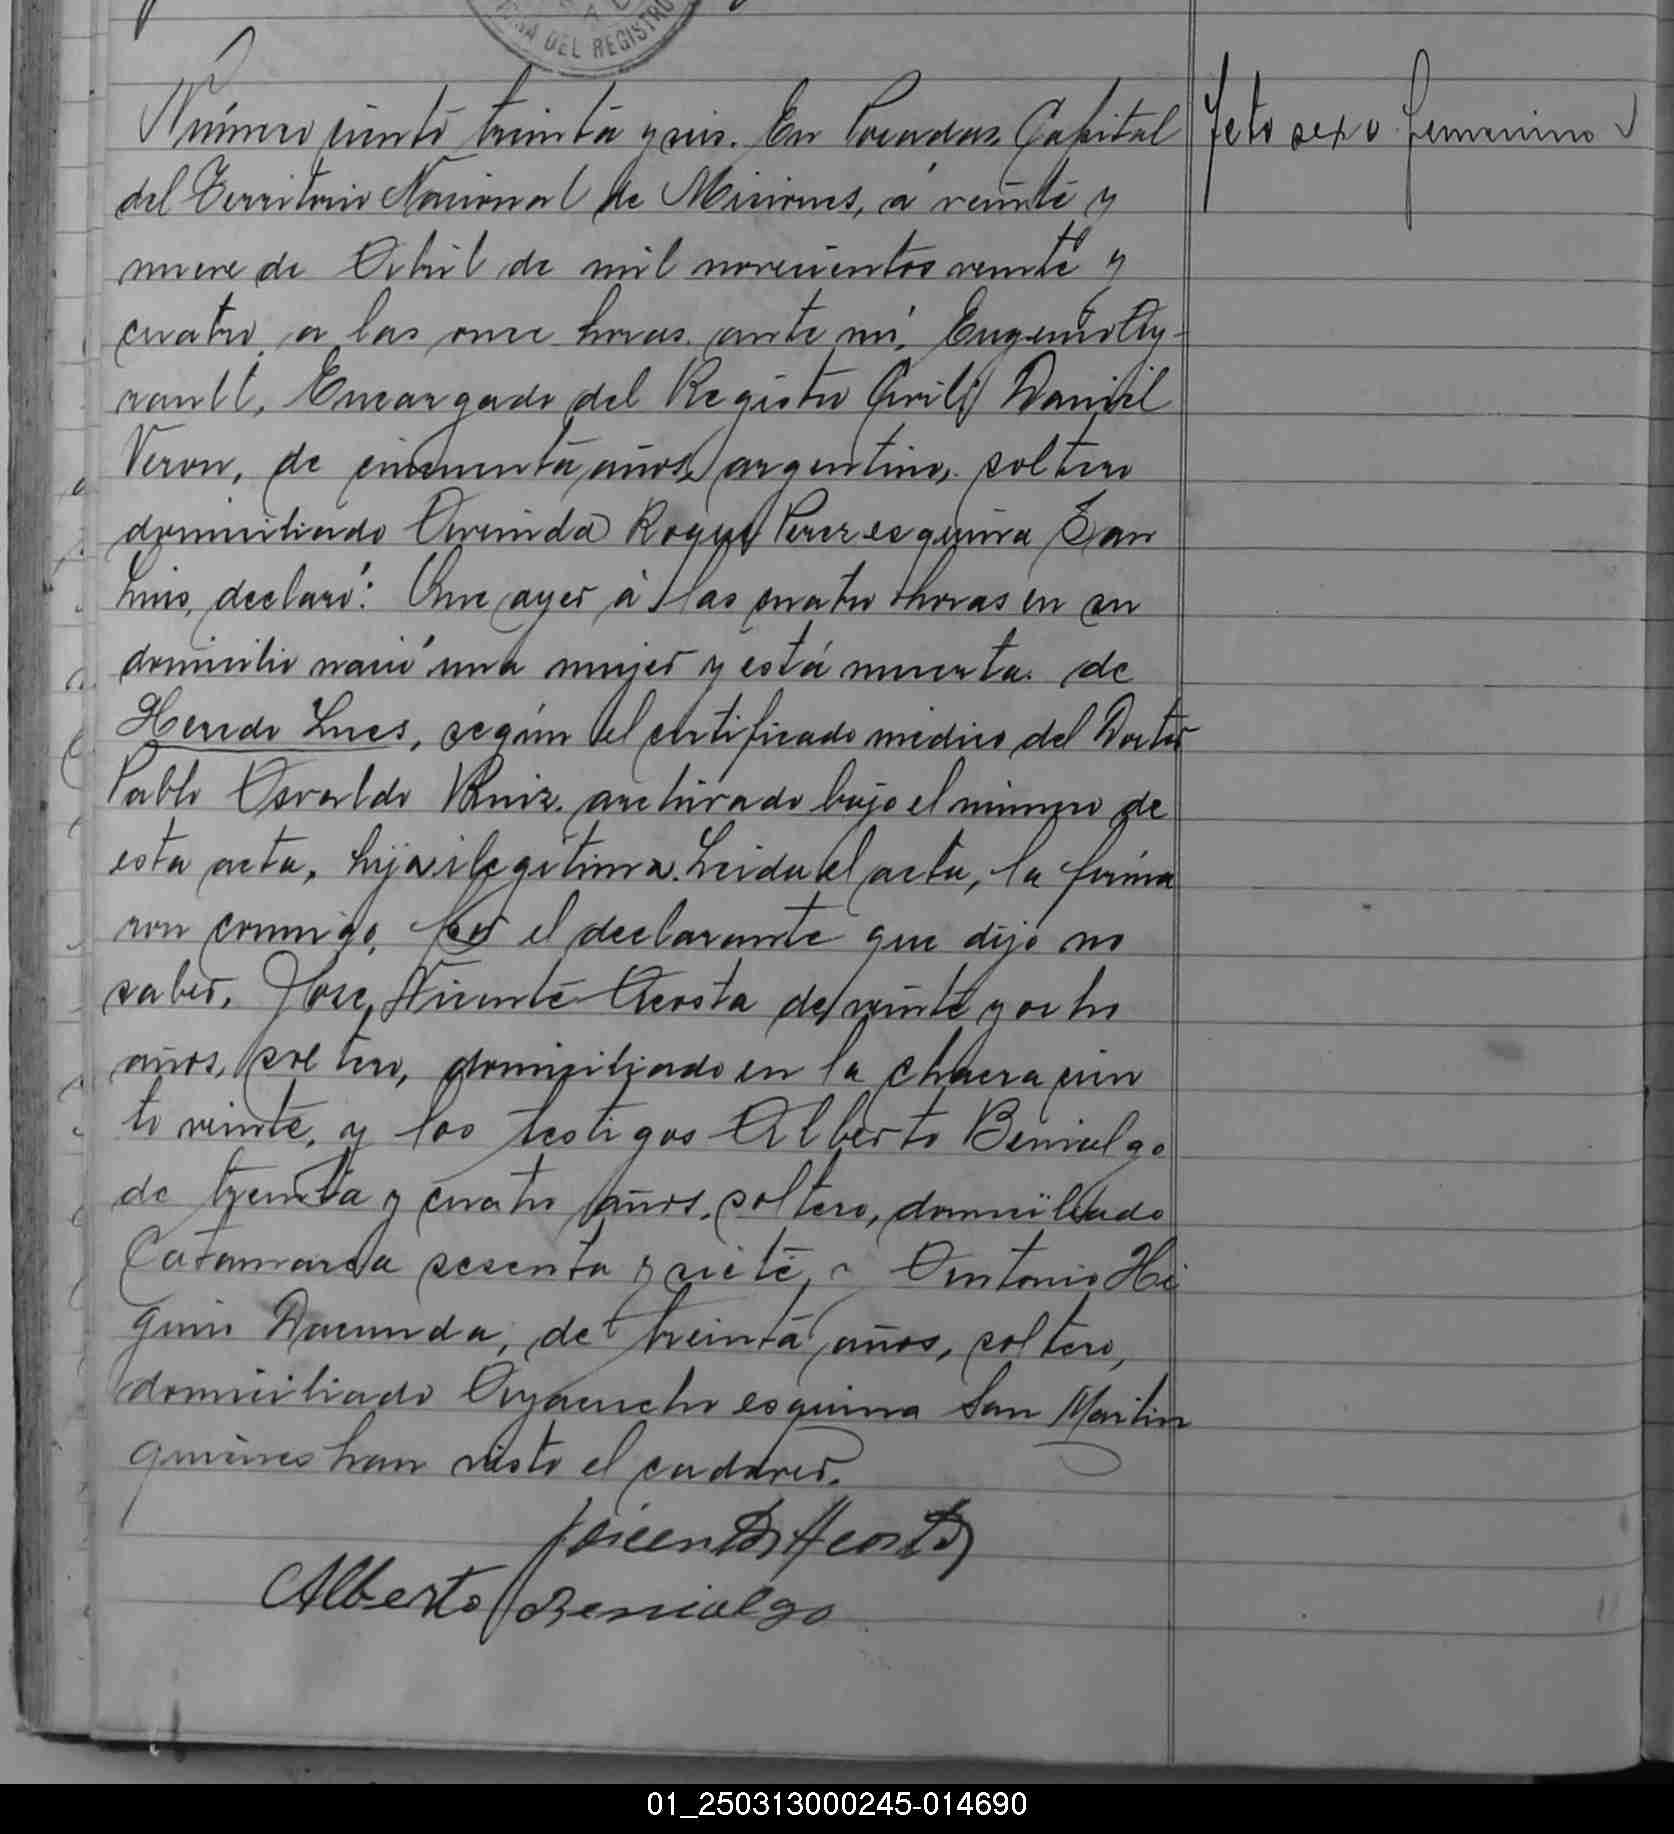 NA DEL REGISTRO
Número ciento treinta y seis. En Posadas, Capital
feto sexo femenino
del Territorio Nacional de Misiones, á veinte y
nueve de Abril de mil novecientos veinte y
cuatro a las once horas, ante mi, Eugenio Ay-
rault, Encargado del Registro Civil, Daniel
Veron, de cincuenta años, argentino, soltero
domiciliado Avenida Roque Perez esquina San
Luis, declaró: Que ayer á las cuatro horas en su
domicilio nació una mujer y está muerta. de
Heredo Lues, según el certificado médico del Doctor
Pablo Osvaldo Ruiz, archivado bajo el número de
esta acta, hija ilegitima. Leida el acta, la firma
ron conmigo, por el declarante que dijo no
saber, Jose Vicente Acosta de veinte y ocho
años, soltero, domiciliado en la chacra cien
to veinte, y los testigos Alberto Benialgo
de treinta y cuatro años, soltero, domiciliado
Catamarca sesenta y siete, y Antonio Hi
ginio Dacunda, de treinta años, soltero,
domiciliado Ayacucho esquina San Martin
quienes han visto el cadaver.
Vicente Acosta
Alberto Benialgo
01_250313000245-014690